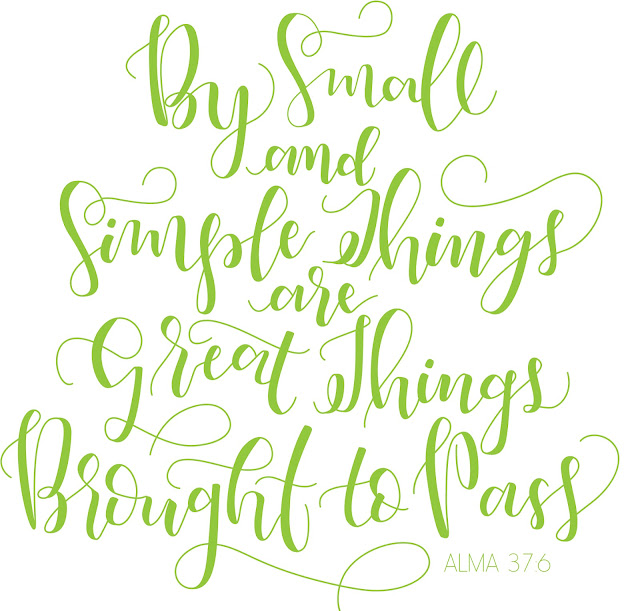 By Small
and
Simple Things
are
Great Things
Brought to Pass
ALMA 37:6